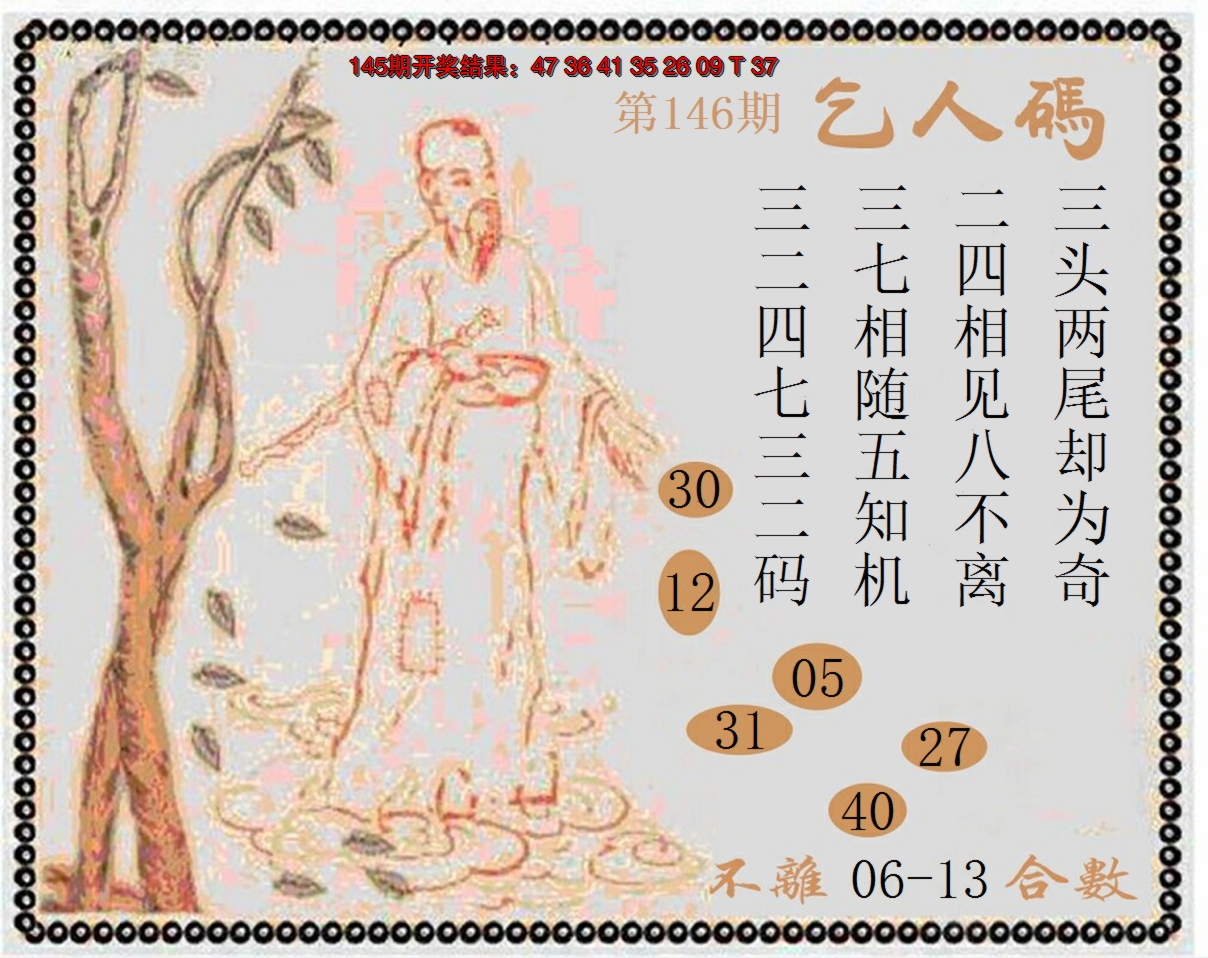 145期开奖结果：47 36 41 35 26 09 T 37
第146期 乞人碼
三头两尾却为奇
二四相见八不离
三七相随五知机
三二四七三二码
30
12
05
31
27
40
不離 06-13 合數